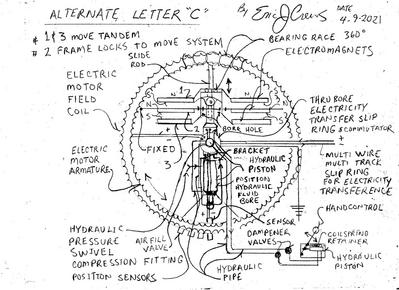 ALTERNATE LETTER "C"
By Eric J Crews
DATE
4.9-2021
# 1 & 3 MOVE TANDEM
# 2 FRAME LOCKS TO MOVE SYSTEM
SLIDE
ROD
BEARING RACE 360°
ELECTROMAGNETS
ELECTRIC
MOTOR
FIELD
COIL
1
N
S
N
S
2
BORE HOLE
THRU BORE
ELECTRICITY
TRANSFER SLIP
RING & COMMUTATOR
FIXED
3
ELECTRIC
MOTOR
ARMATURE
BRACKET
HYDRAULIC
PISTON
POSITION
HYDRAULIC
FLUID
BORE
+
MULTI WIRE
MULTI TRACK
SLIP RING
FOR ELECTRICITY
TRANSFERENCE
HANDCONTROL
SENSOR
DAMPENER
VALVES
COILSPRING
RETAINER
HYDRAULIC
PISTON
HYDRAULIC
PRESSURE
SWIVEL
COMPRESSION FITTING
POSITION SENSORS
AIR FILL
VALVE
HYDRAULIC
PIPE